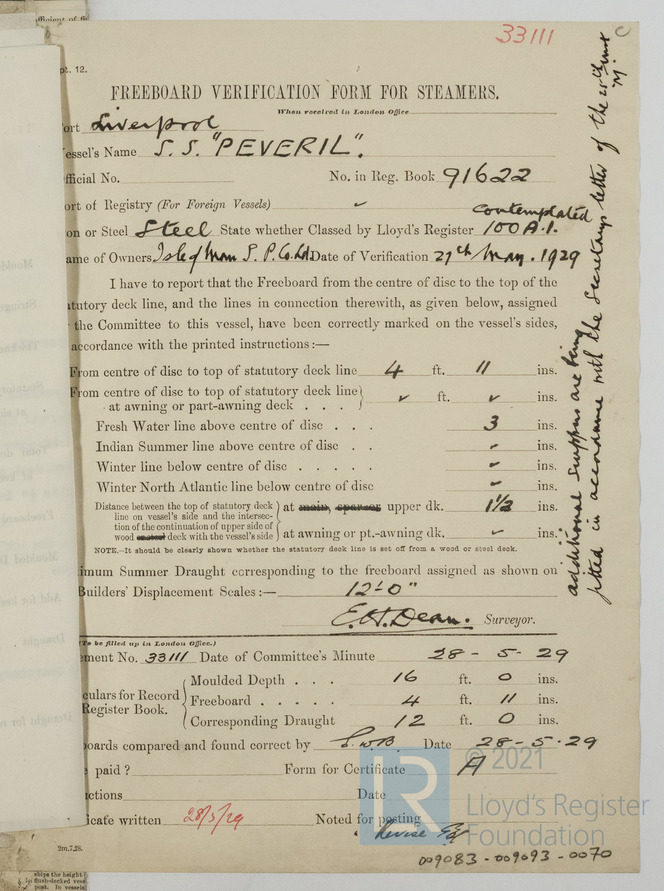 33111
pt. 12.
FREEBOARD VERIFICATION FORM FOR STEAMERS.
When received in London Office
ort Liverpool
essel's Name S. S. "PEVERIL".
fficial No. No. in Reg. Book 91622
ort of Registry (For Foreign Vessels) ✓
contemplated
on or Steel Steel State whether Classed by Lloyd's Register 100 A.1.
ame of Owners Isle of Man S. P. Co. Ld Date of Verification 27th May. 1929
I have to report that the Freeboard from the centre of disc to the top of the
tutory deck line, and the lines in connection therewith, as given below, assigned
the Committee to this vessel, have been correctly marked on the vessel's sides,
accordance with the printed instructions:—
From centre of disc to top of statutory deck line 4 ft. 11 ins.
From centre of disc to top of statutory deck line
at awning or part-awning deck . . . ✓ ft. ✓ ins.
Fresh Water line above centre of disc . . . 3 ins.
Indian Summer line above centre of disc . . - ins.
Winter line below centre of disc . . . . . - ins.
Winter North Atlantic line below centre of disc - ins.
Distance between the top of statutory deck line on vessel's side and the intersection of the continuation of upper side of wood deck with the vessel's side
at main, sparson upper dk. 1½ ins.
at awning or pt.-awning dk. - ins.
NOTE.—It should be clearly shown whether the statutory deck line is set off from a wood or steel deck.
imum Summer Draught corresponding to the freeboard assigned as shown on
Builders' Displacement Scales:— 12'-0"
E.H. Dean. Surveyor.
(To be filled up in London Office.)
ment No. 33111 Date of Committee's Minute 28 - 5 - 29
culars for Record
Register Book.
Moulded Depth . . . 16 ft. 0 ins.
Freeboard . . . . . 4 ft. 11 ins.
Corresponding Draught 12 ft. 0 ins.
boards compared and found correct by Date 28-5-29
paid? Form for Certificate A
ctions Date
icate written 28/5/29 Noted for posting
2m.7,28.
009083-009093-0070
additional scuppers are being
fitted in accordance with the Secretarys letter of the 25th inst
© 2021
Lloyd's Register
Foundation
LR